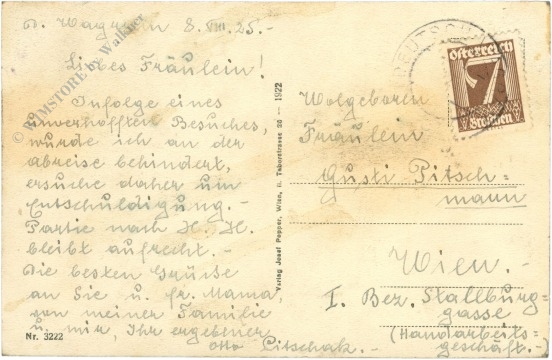 D. Wagram 8. VIII. 25.-
Liebes Fräulein!
Infolge eines
unverhofften Besuches,
wurde ich an der
abreise behindert,
ersuche daher um
Entschuldigung.-
Partie nach H. H.
bleibt aufrecht.-
Die besten Grüße
an Sie u. fr. Mama,
von meiner Familie
u. mir, Ihr ergebener
Otto Citschak.-
Nr. 3222
Verlag Josef Popper, Wien, II. Taborstrasse 20 - 1922
DEUTSCH
Österreich
7
Groschen
Wolgeboren
Fräulein
Gusti Pitsch=
mann
Wien.-
I. Bez. Stallburg=
gasse
(Handarbeits=
geschäft.-)
© BAMSTORE by Walkner